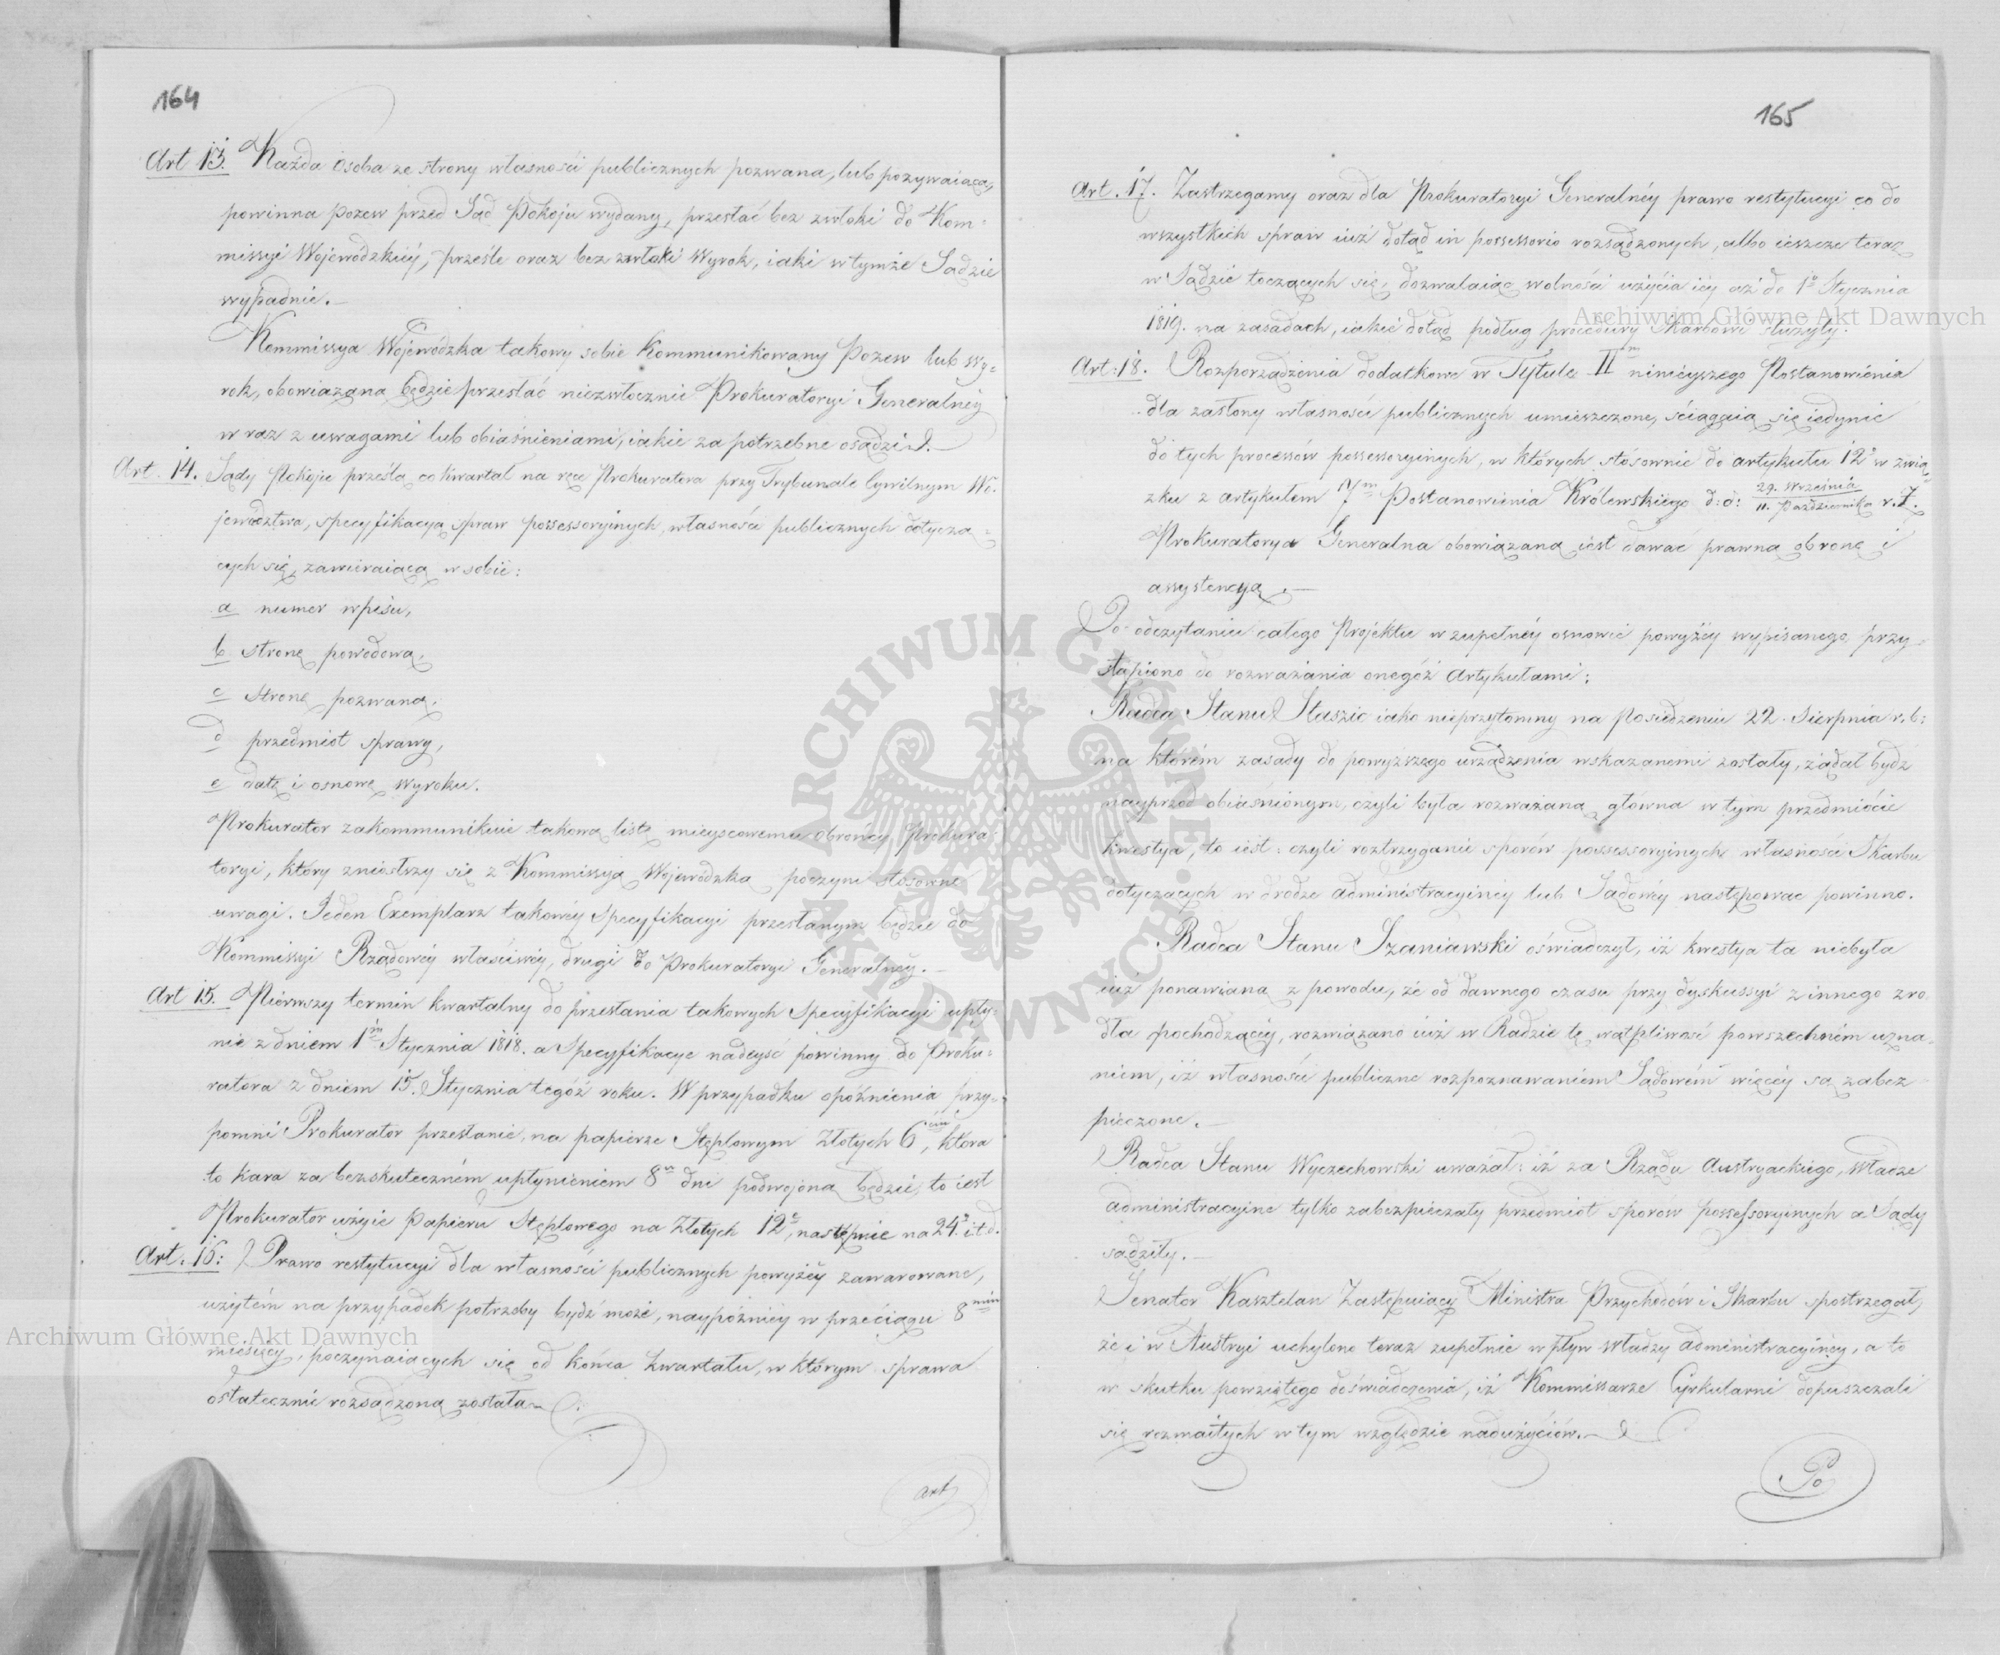 164
Art 13. Każda Osoba ze strony własności publicznych pozwana, lub pozywaiąca,
powinna pozew przed Sąd Pokoju wydany, przesłać bez zwłoki do Kom-
missyi Wojewódzkiéy, prześle oraz bez zwłoki Wyrok, iaki w tymże Sądzie
wypadnie.
Kommissya Wojewódzka takowy sobie kommunikowany Pozew lub Wy-
rok, obowiązana będzie przesłać niezwłocznie Prokuratoryi Generalnéy
w raz z uwagami lub obiaśnieniami, iakie za potrzebne osądzi.
Art. 14. Sądy Pokoju prześlą co kwartał na ręce Prokuratora przy Trybunale Cywilnym Wo-
jewództwa, specyfikacyą spraw possessoryinych, własności publicznych dotyczą-
cych się, zawieraiącą w sobie:
a numer wpisu,
b stronę powodową,
c stronę pozwaną,
d przedmiot sprawy,
e datę i osnowę wyroku.
Prokurator zakommunikuie takową listę mieyscowemu obrońcy Prokura-
toryi, który zniosłszy się z Kommissyą Wojewódzką poczyni stosowne
uwagi. Jeden Exemplarz takowéy Specyfikacyi przesłanym będzie do
Kommissyi Rządowéy właściwéy, drugi do Prokuratoryi Generalnéy.
Art 15. Piérwszy termin kwartalny do przesłania takowych Specyfikacyi upły-
nie z dniem 1m Stycznia 1818. a Specyfikacye nadeyść powinny do Proku-
ratora z dniem 15. Stycznia tegóż roku. W przypadku opóźnienia przy-
pomni Prokurator przesłanie, na papierze Stęplowym Złotych 6ciu, która
to kara za bezskuteczném upłynieniem 8u dni podwojoną będzie, to iest
Prokurator użyie Papieru Stęplowego na Złotych 12e, następnie na 24. i t. d.
Art. 16: Prawo restytucyi dla własności publicznych powyżéy zawarowane,
użytém na przypadek potrzeby bydź może, naypóźniéy w przeciągu 8miu
miesięcy, poczynaiących się od końca kwartału, w którym sprawa
ostatecznie rozsądzoną została.
Art
165
Art. 17. Zastrzegamy oraz dla Prokuratoryi Generalnéy prawo restytucyi co do
wszystkich spraw iuż dotąd in possessorio rozsądzonych, albo ieszcze teraz
w Sądzie toczących się, dozwalaiąc wolności użycia iéy aż do 1o Stycznia
1819. na zasadach, iakie dotąd podług procedury Skarbowi służyły.
Art: 18. Rozporządzenia dodatkowe w Tytule IIm ninieyszego Postanowienia
dla zasłony własności publicznych umieszczone, ściągaią się iedynie
do tych processów possessoryinych, w których stósownie do artykułu 12o w zwią-
zku z artykułem 7m Postanowienia Królewskiego d: d: 29. Września
11. Października r. z.
Prokuratorya Generalna obowiązaną iest dawać prawną obronę i
assystencyą.
Po odczytaniu całego Projektu w zupełnéy osnowie powyżéy wypisanego przy-
stąpiono do rozważania onegóż Artykułami:
Radca Stanu Staszic iako nieprzytomny na Posiedzeniu 22. Sierpnia r. b:
na którém zasady do powyższego urządzenia wskazanemi zostały, żądał bydź
nayprzód obiaśnionym, czyli była rozważaną główna w tym przedmiocie
kwestya, to iest: czyli roztrzyganie sporów possessoryinych własności Skarbu
dotyczących w drodze administracyinéy lub Sądowéy następować powinno.
Radca Stanu Szaniawski oświadczył, iż kwestya ta niebyła
iuż ponawianą z powodu, że od dawnego czasu przy dyskussyi z innego źró-
dła pochodzącéy, rozwiązano iuż w Radzie tę wątpliwość powszechném uzna-
niem, iż własności publiczne rozpoznawaniem Sądowém więcéy są zabez
pieczone.
Radca Stanu Wyczechowski uważał: iż za Rządu Austryackiego, Władze
administracyine tylko zabezpieczały przedmiot sporów possessoryinych a Sądy
sądziły.
Senator Kasztelan Zastępuiący Ministra Przychodów i Skarbu spostrzegał,
że i w Austryi uchylono teraz zupełnie wpływ Władzy administracyinéy, a to
w skutku powziętego doświadczenia, iż Kommissarze Cyrkularni dopuszczali
się rozmaitych w tym względzie nadużyciów.
Po
Archiwum Główne Akt Dawnych
Archiwum Główne Akt Dawnych
ARCHIWUM GŁÓWNE AKT DAWNYCH